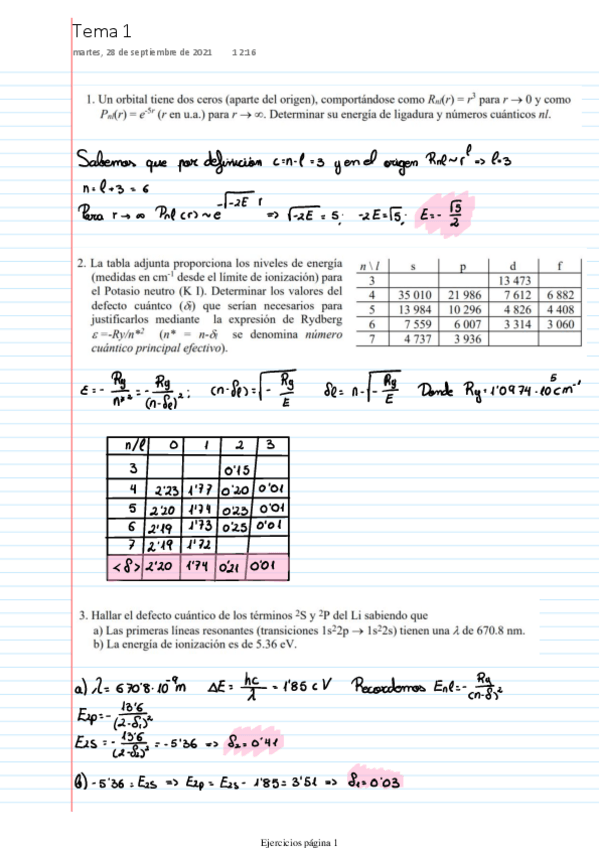 Tema 1
martes, 28 de septiembre de 2021 12:16
1. Un orbital tiene dos ceros (aparte del origen), comportándose como Rnl(r) = r³ para r → 0 y como
Pnl(r) = e⁻⁵ʳ (r en u.a.) para r → ∞. Determinar su energía de ligadura y números cuánticos nl.
Sabemos que por definición c=n-l=3 y en el origen Rnl~r^l => l=3
n=l+3=6
Para r→∞ Pnl(r)~e^-√-2E r => √-2E = 5; -2E=√5; E=-√5/2
2. La tabla adjunta proporciona los niveles de energía
(medidas en cm⁻¹ desde el límite de ionización) para
el Potasio neutro (K I). Determinar los valores del
defecto cuántco (δl) que serían necesarios para
justificarlos mediante la expresión de Rydberg
ε =-Ry/n*² (n* = n-δl se denomina número
cuántico principal efectivo).
n \ l s p d f
3 13 473
4 35 010 21 986 7 612 6 882
5 13 984 10 296 4 826 4 408
6 7 559 6 007 3 314 3 060
7 4 737 3 936
E=-Ry/n*²=-Ry/(n-δl)²; (n-δl)=√-Ry/E δl=n-√-Ry/E Donde Ry=1'0974·10⁵cm⁻¹
n/l 0 1 2 3
3 0'15
4 2'23 1'77 0'20 0'01
5 2'20 1'74 0'23 0'01
6 2'19 1'73 0'25 0'01
7 2'19 1'72
<δ> 2'20 1'74 0'21 0'01
3. Hallar el defecto cuántico de los términos ²S y ²P del Li sabiendo que
a) Las primeras líneas resonantes (transiciones 1s²2p → 1s²2s) tienen una λ de 670.8 nm.
b) La energía de ionización es de 5.36 eV.
a) λ=670'8·10⁻⁹m ΔE=hc/λ=1'85 eV Recordemos Enl=-Ry/(n-δ)²
E2p=-13'6/(2-δ1)²
E2s=-13'6/(2-δ2)²=-5'36 => δ2=0'41
b) -5'36=E2s => E2p=E2s-1'85=3'51 => δ1=0'03
Ejercicios página 1